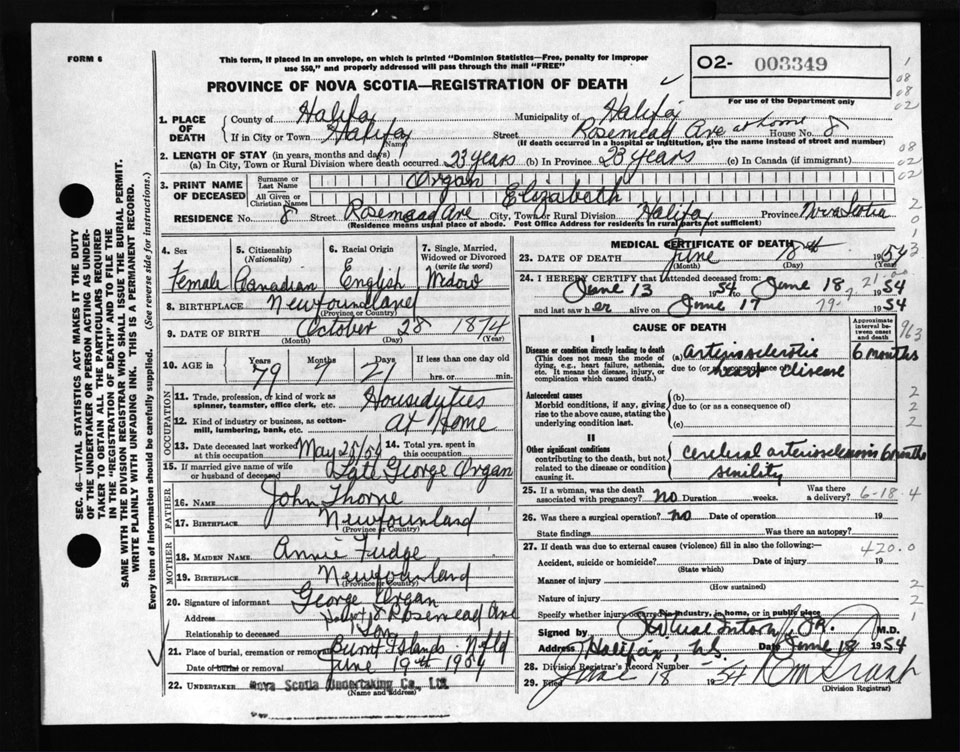 FORM 6
This form, if placed in an envelope, on which is printed "Dominion Statistics—Free, penalty for improper
use $50," and properly addressed will pass through the mail "FREE"
02- 003349
For use of the Department only
PROVINCE OF NOVA SCOTIA—REGISTRATION OF DEATH
1. PLACE OF DEATH
County of Halifax Municipality of Halifax
If in City or Town Halifax (Name) Street Rosemead Ave at home House No. 8
(If death occurred in a hospital or institution, give the name instead of street and number)
2. LENGTH OF STAY (in years, months and days)
(a) In City, Town or Rural Division where death occurred 23 years (b) In Province 23 years (c) In Canada (if immigrant)
3. PRINT NAME OF DECEASED
Surname or Last Name Organ
All Given or Christian Names Elizabeth
RESIDENCE No. 8 Street Rosemead Ave City, Town or Rural Division Halifax Province Nova Scotia
(Residence means usual place of abode. Post Office Address for residents in rural parts not sufficient)
4. Sex 5. Citizenship (Nationality) 6. Racial Origin 7. Single, Married, Widowed or Divorced (write the word)
Female Canadian English Widow
8. BIRTHPLACE Newfoundland
(Province or Country)
9. DATE OF BIRTH October 28 1874
(Month) (Day) (Year)
10. AGE in Years Months Days If less than one day old
79 7 21 hrs. or min.
OCCUPATION
11. Trade, profession, or kind of work as spinner, teamster, office clerk, etc. Houseduties
12. Kind of industry or business, as cotton-mill, lumbering, bank, etc. At Home
13. Date deceased last worked at this occupation May 25/54 14. Total yrs. spent in this occupation
15. If married give name of wife or husband of deceased Late George Organ
FATHER
16. Name John Thorne
17. Birthplace Newfounland
(Province or Country)
MOTHER
18. MAIDEN NAME Annie Fudge
19. BIRTHPLACE Newfounland
(Province or Country)
20. Signature of informant George Organ
Address 8 Rosemead Ave
Relationship to deceased Son
21. Place of burial, cremation or removal Burnt Islands Nfld
Date of burial or removal June 19th 1954
22. UNDERTAKER Nova Scotia Undertaking Co., Ltd.
(Name and Address)
MEDICAL CERTIFICATE OF DEATH
23. DATE OF DEATH June 18th 1954
(Month) (Day) (Year)
24. I HEREBY CERTIFY that I attended deceased from:
June 13 1954 to June 18 1954
and last saw her alive on June 17 1954
CAUSE OF DEATH
Approximate interval between onset and death
I
Disease or condition directly leading to death
(This does not mean the mode of dying, e.g., heart failure, asthenia, etc. It means the disease, injury, or complication which caused death.)
(a) arteriosclerotic 6 months
due to (or as a consequence of)
heart disease
Antecedent causes
Morbid conditions, if any, giving rise to the above cause, stating the underlying condition last
(b)
due to (or as a consequence of)
(c)
II
Other significant conditions
contributing to the death, but not related to the disease or condition causing it.
Cerebral arteriosclerosis 6 months
senility
25. If a woman, was the death associated with pregnancy? no Duration weeks. Was there a delivery? 6-18-4
26. Was there a surgical operation? no Date of operation 19
State findings Was there an autopsy?
27. If death was due to external causes (violence) fill in also the following:— 420.0
Accident, suicide or homicide? Date of injury 19
(State which)
Manner of injury
(How sustained)
Nature of injury
Specify whether injury occurred in industry, in home, or in public place
Signed by M.D.
Address Halifax, N.S. Date June 18 1954
28. Division Registrar's Record Number
29. Filed June 18 1954
(Division Registrar)
SEC. 46—VITAL STATISTICS ACT MAKES IT THE DUTY
OF THE UNDERTAKER OR PERSON ACTING AS UNDER-
TAKER TO OBTAIN ALL THE PARTICULARS REQUIRED
IN THE "REGISTRATION OF DEATH" AND TO FILE THE
SAME WITH THE DIVISION REGISTRAR WHO SHALL ISSUE THE BURIAL PERMIT.
WRITE PLAINLY WITH UNFADING INK. THIS IS A PERMANENT RECORD.
Every item of information should be carefully supplied. (See reverse side for instructions.)